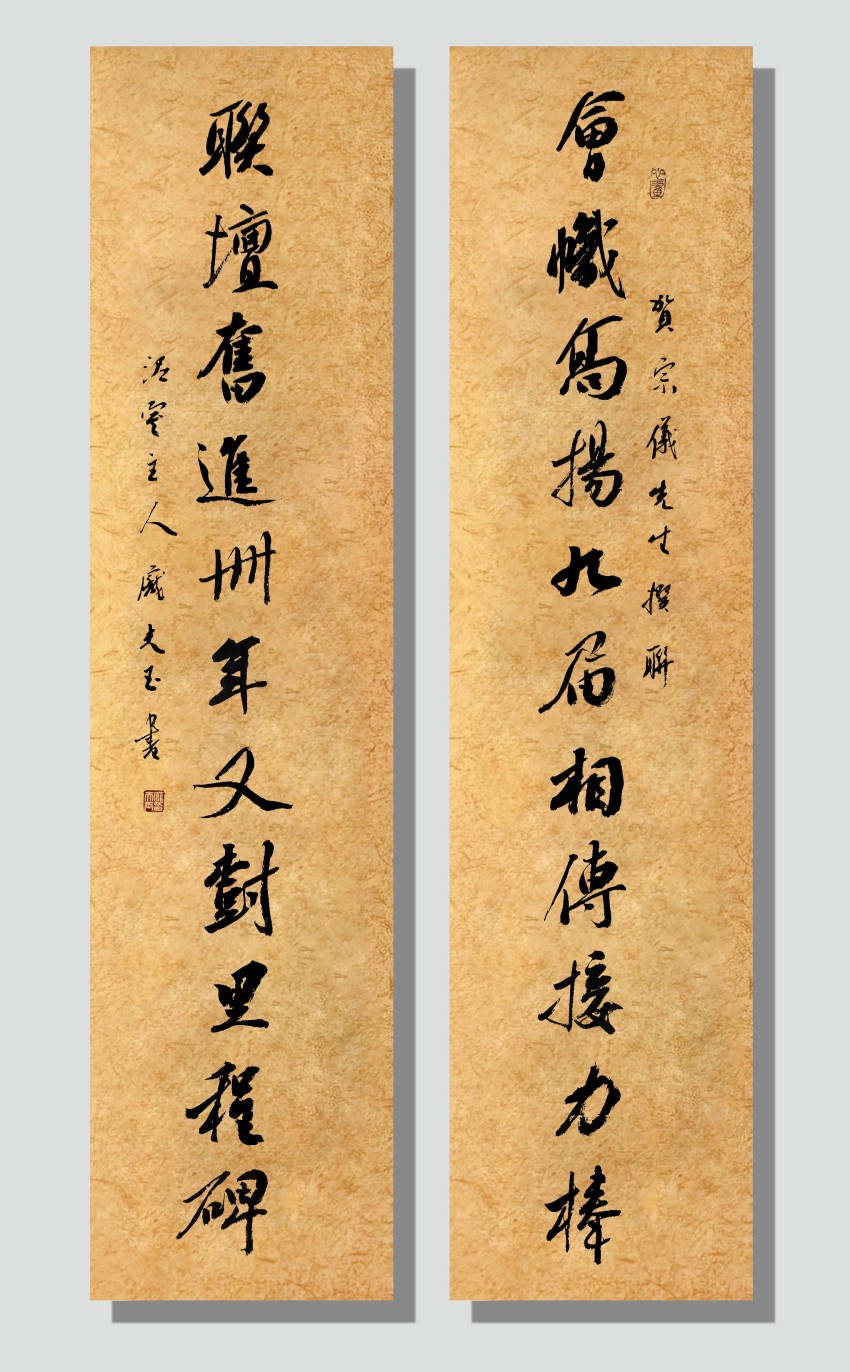 會幟高揚九届相傳接力棒
賀宗儀先生撰聯
聯壇奮進卅年又樹里程碑
主人
夫玉書